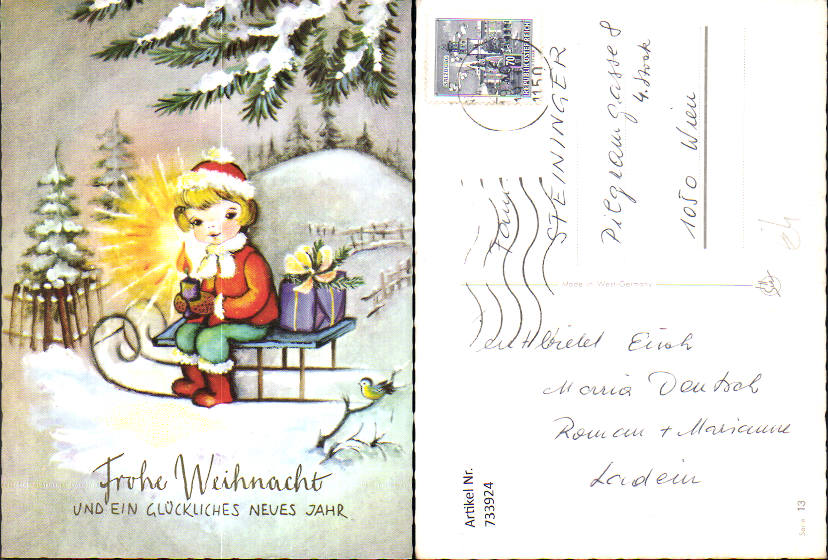 Frohe Weihnacht
UND EIN GLÜCKLICHES NEUES JAHR
REPUBLIK ÖSTERREICH
70
1150
Fam.
STEININGER
Pilgramgasse 8
4. Stock
1050 Wien
Made in West-Germany
entbietet Euch
Maria Deutsch
Roman + Marianne
Ladein
Artikel Nr.
733924
Serie 13